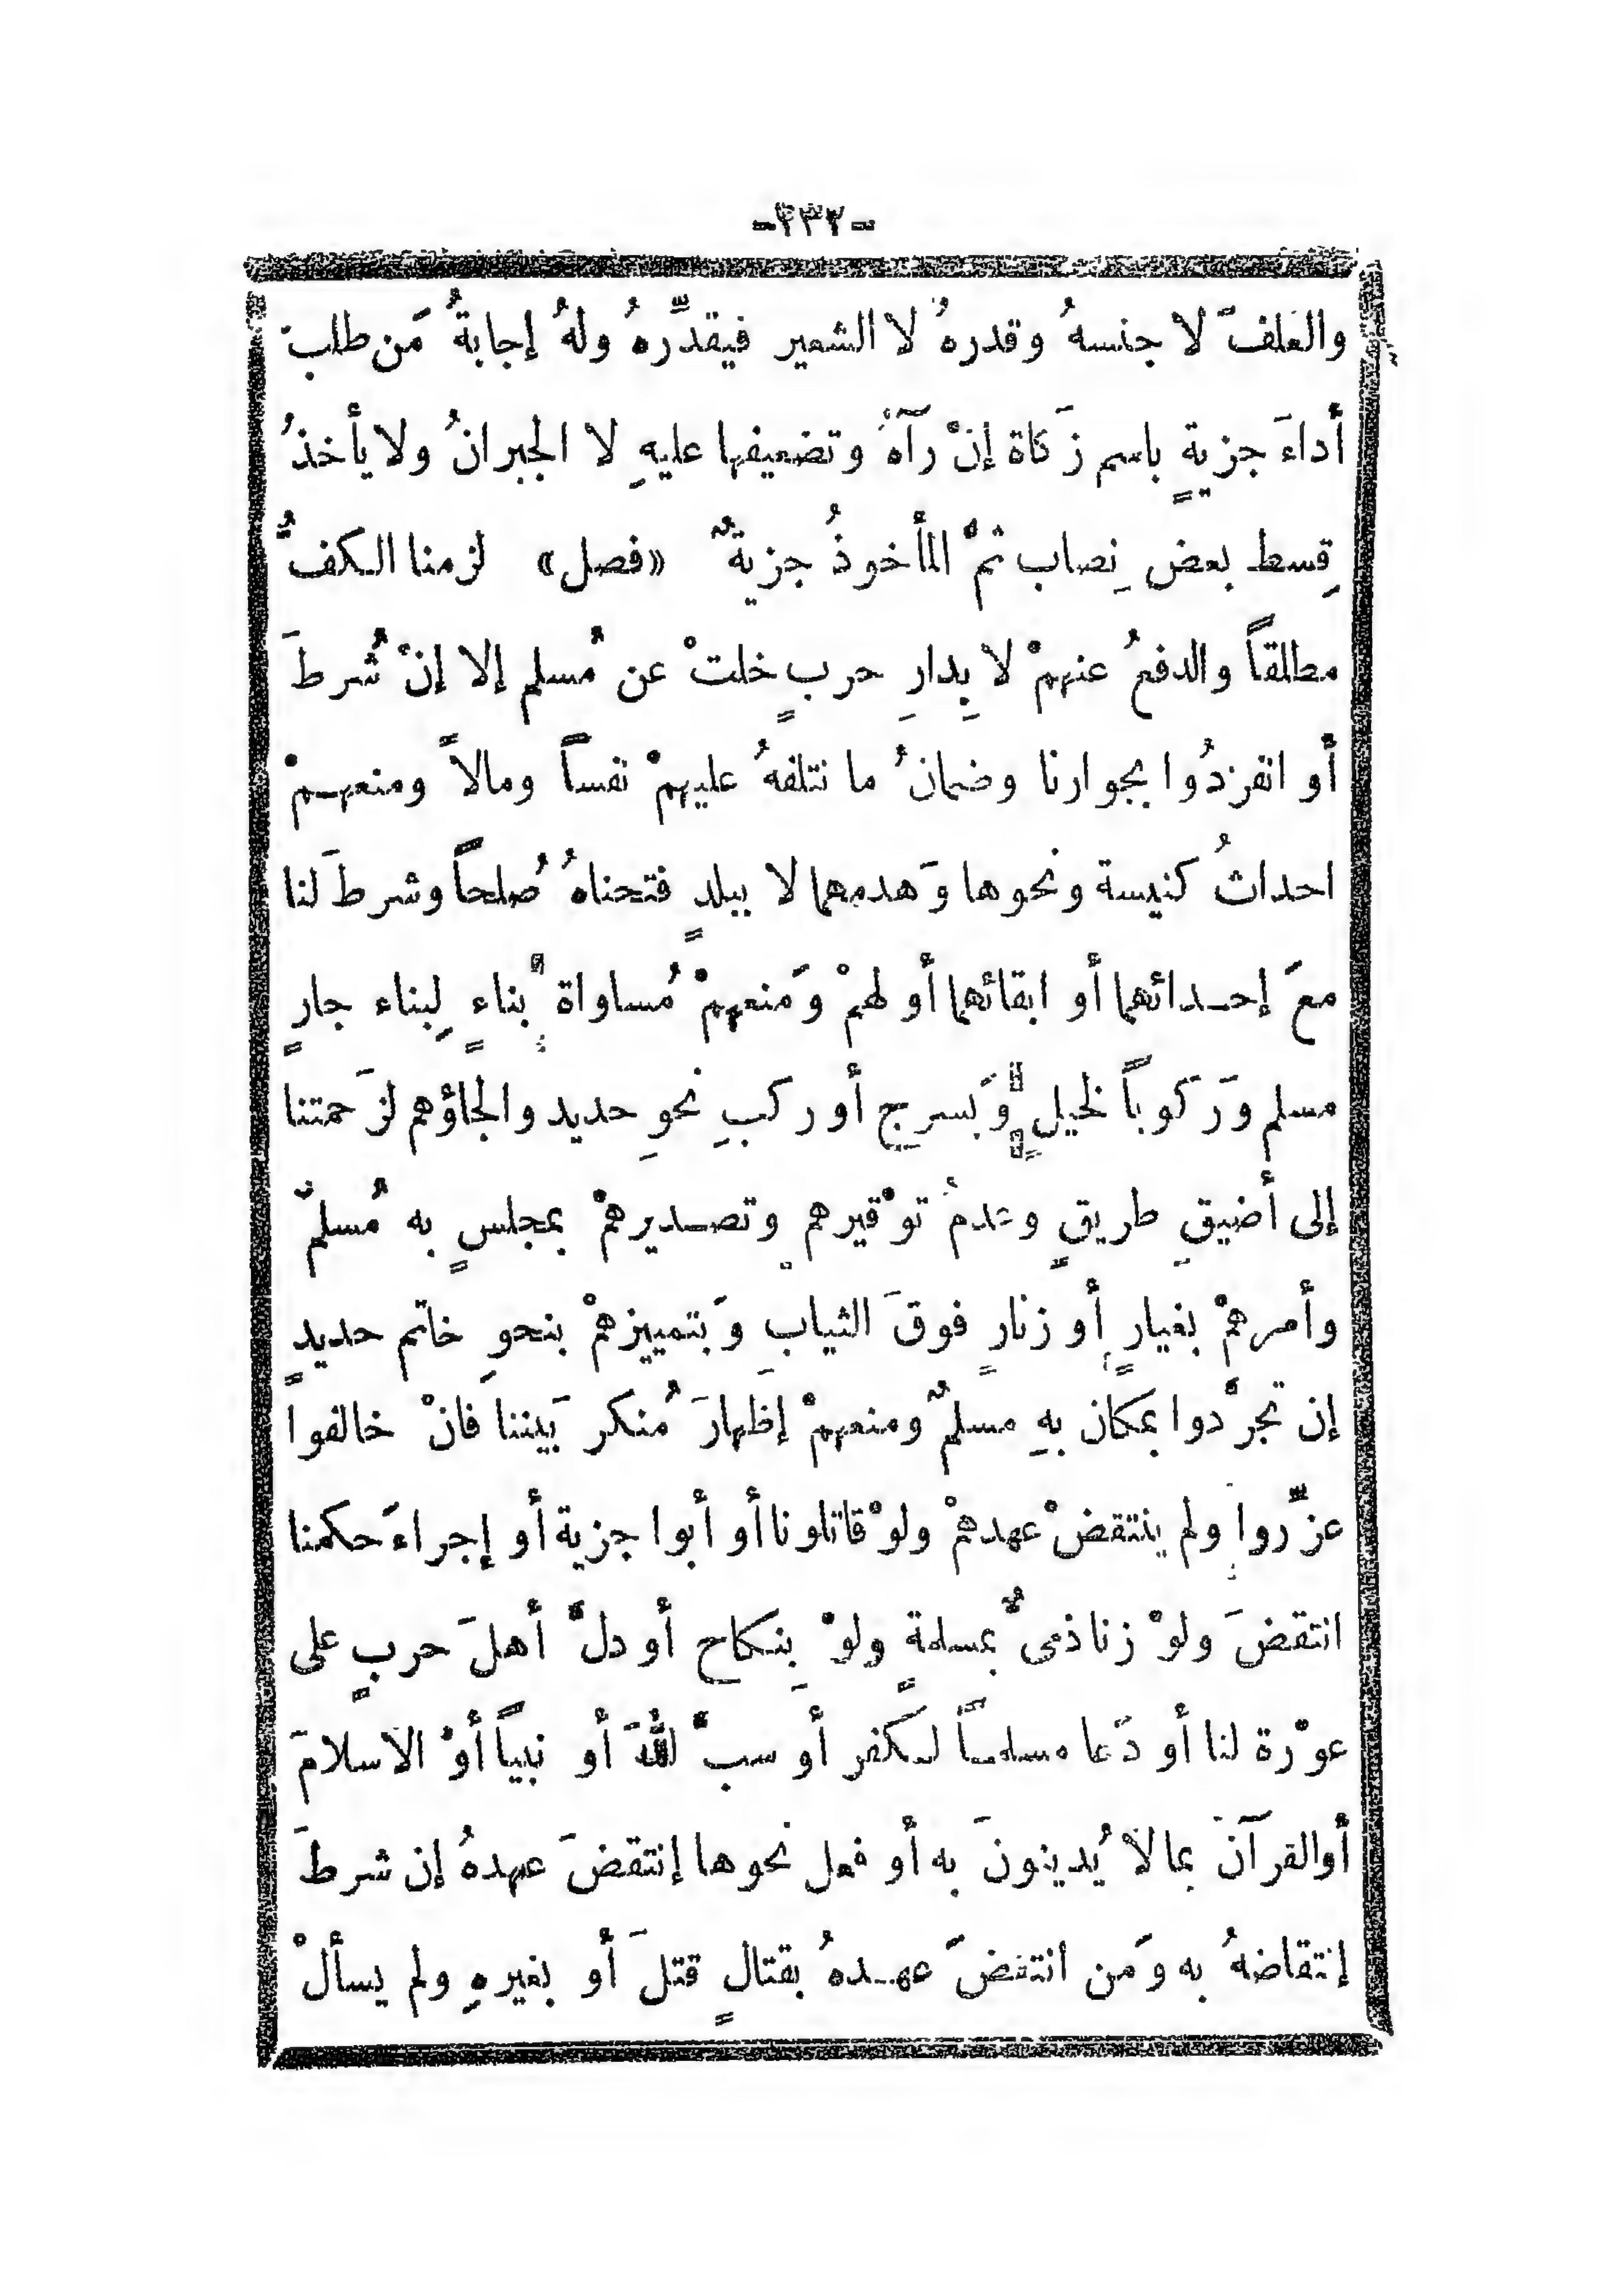 -٣٣٢-
والعلفَ لا جنسهُ وقدرهُ لا الشعير فيقدِّرهُ ولهُ إجابةُ مَن طلبَ
أداءَ جزيةٍ باسم زَكاة إنْ رآهُ وتضعيفها عليهِ لا الجبرانُ ولا يأخذُ
قِسط بعض نِصاب ثمْ المأخوذُ جزيةٌ «فصل» لزمنا الكفُّ
مطلقاً والدفعُ عنهمْ لا بِدارِ حربٍ خلتْ عن مُسلم إلا إنْ شُرطَ
أو انفردُوا بجوارنا وضمانُ ما نتلفهُ عليهمْ نفساً ومالاً ومنعهمْ
احداثُ كنيسة ونحوها وَهدمهما لا ببلدٍ فتحناهُ صُلحاً وشرطَ لنا
معَ إحدائهما أو ابقائهما أو لهمْ وَمنعهمْ مُساواة بناءٍ لِبناء جارٍ
مسلم وَرَكوباً لخيلٍ وَبَسرج أو ركبِ نحوِ حديد والجاؤهم لزَحمتنا
إلى أضيقِ طريقٍ وعدمُ توْقيرهم وتصديرهمْ بمجلسٍ به مُسلمٌ
وأمرهمْ بغيارٍ أو زنارٍ فوقَ الثيابِ وَبتمييزهمْ بنحوِ خاتم حديدٍ
إن تجرَّدوا بمكان بهِ مسلمٌ ومنعهمْ إظهارَ مُنكر بَيننا فانْ خالفوا
عزِّروا ولم ينتقضْ عهدهمْ ولوْ قاتلونا أو أبوا جزية أو إجراءَ حكمنا
انتقضَ ولوْ زنا ذمىٌّ بمسلمةٍ ولوْ بِنكاح أو دلَّ أهلَ حربٍ على
عوْرة لنا أو دَعا مسلماً لكفر أو سبَّ اللهَ أو نبياً أوْ الاسلامَ
أو القرآنَ بمالا يُدينونَ به أو فعل نحوها إنتقضَ عهدهُ إن شرطَ
إنتقاضهُ به وَمن انتقضَ عهدهُ بقتالٍ قتلَ أو بغيرهِ ولم يسألْ